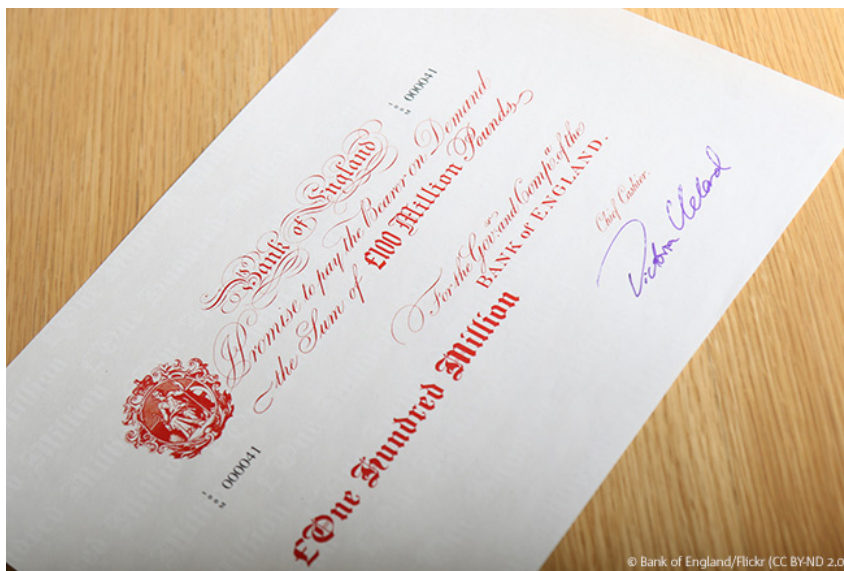 000041
Bank of England
Promise to pay the Bearer on Demand
the Sum of £100 Million Pounds
000041
For the Gov:r and Comp:a of the
BANK of ENGLAND.
£One Hundred Million
Chief Cashier.
Victoria Cleland
© Bank of England/Flickr (CC BY-ND 2.0